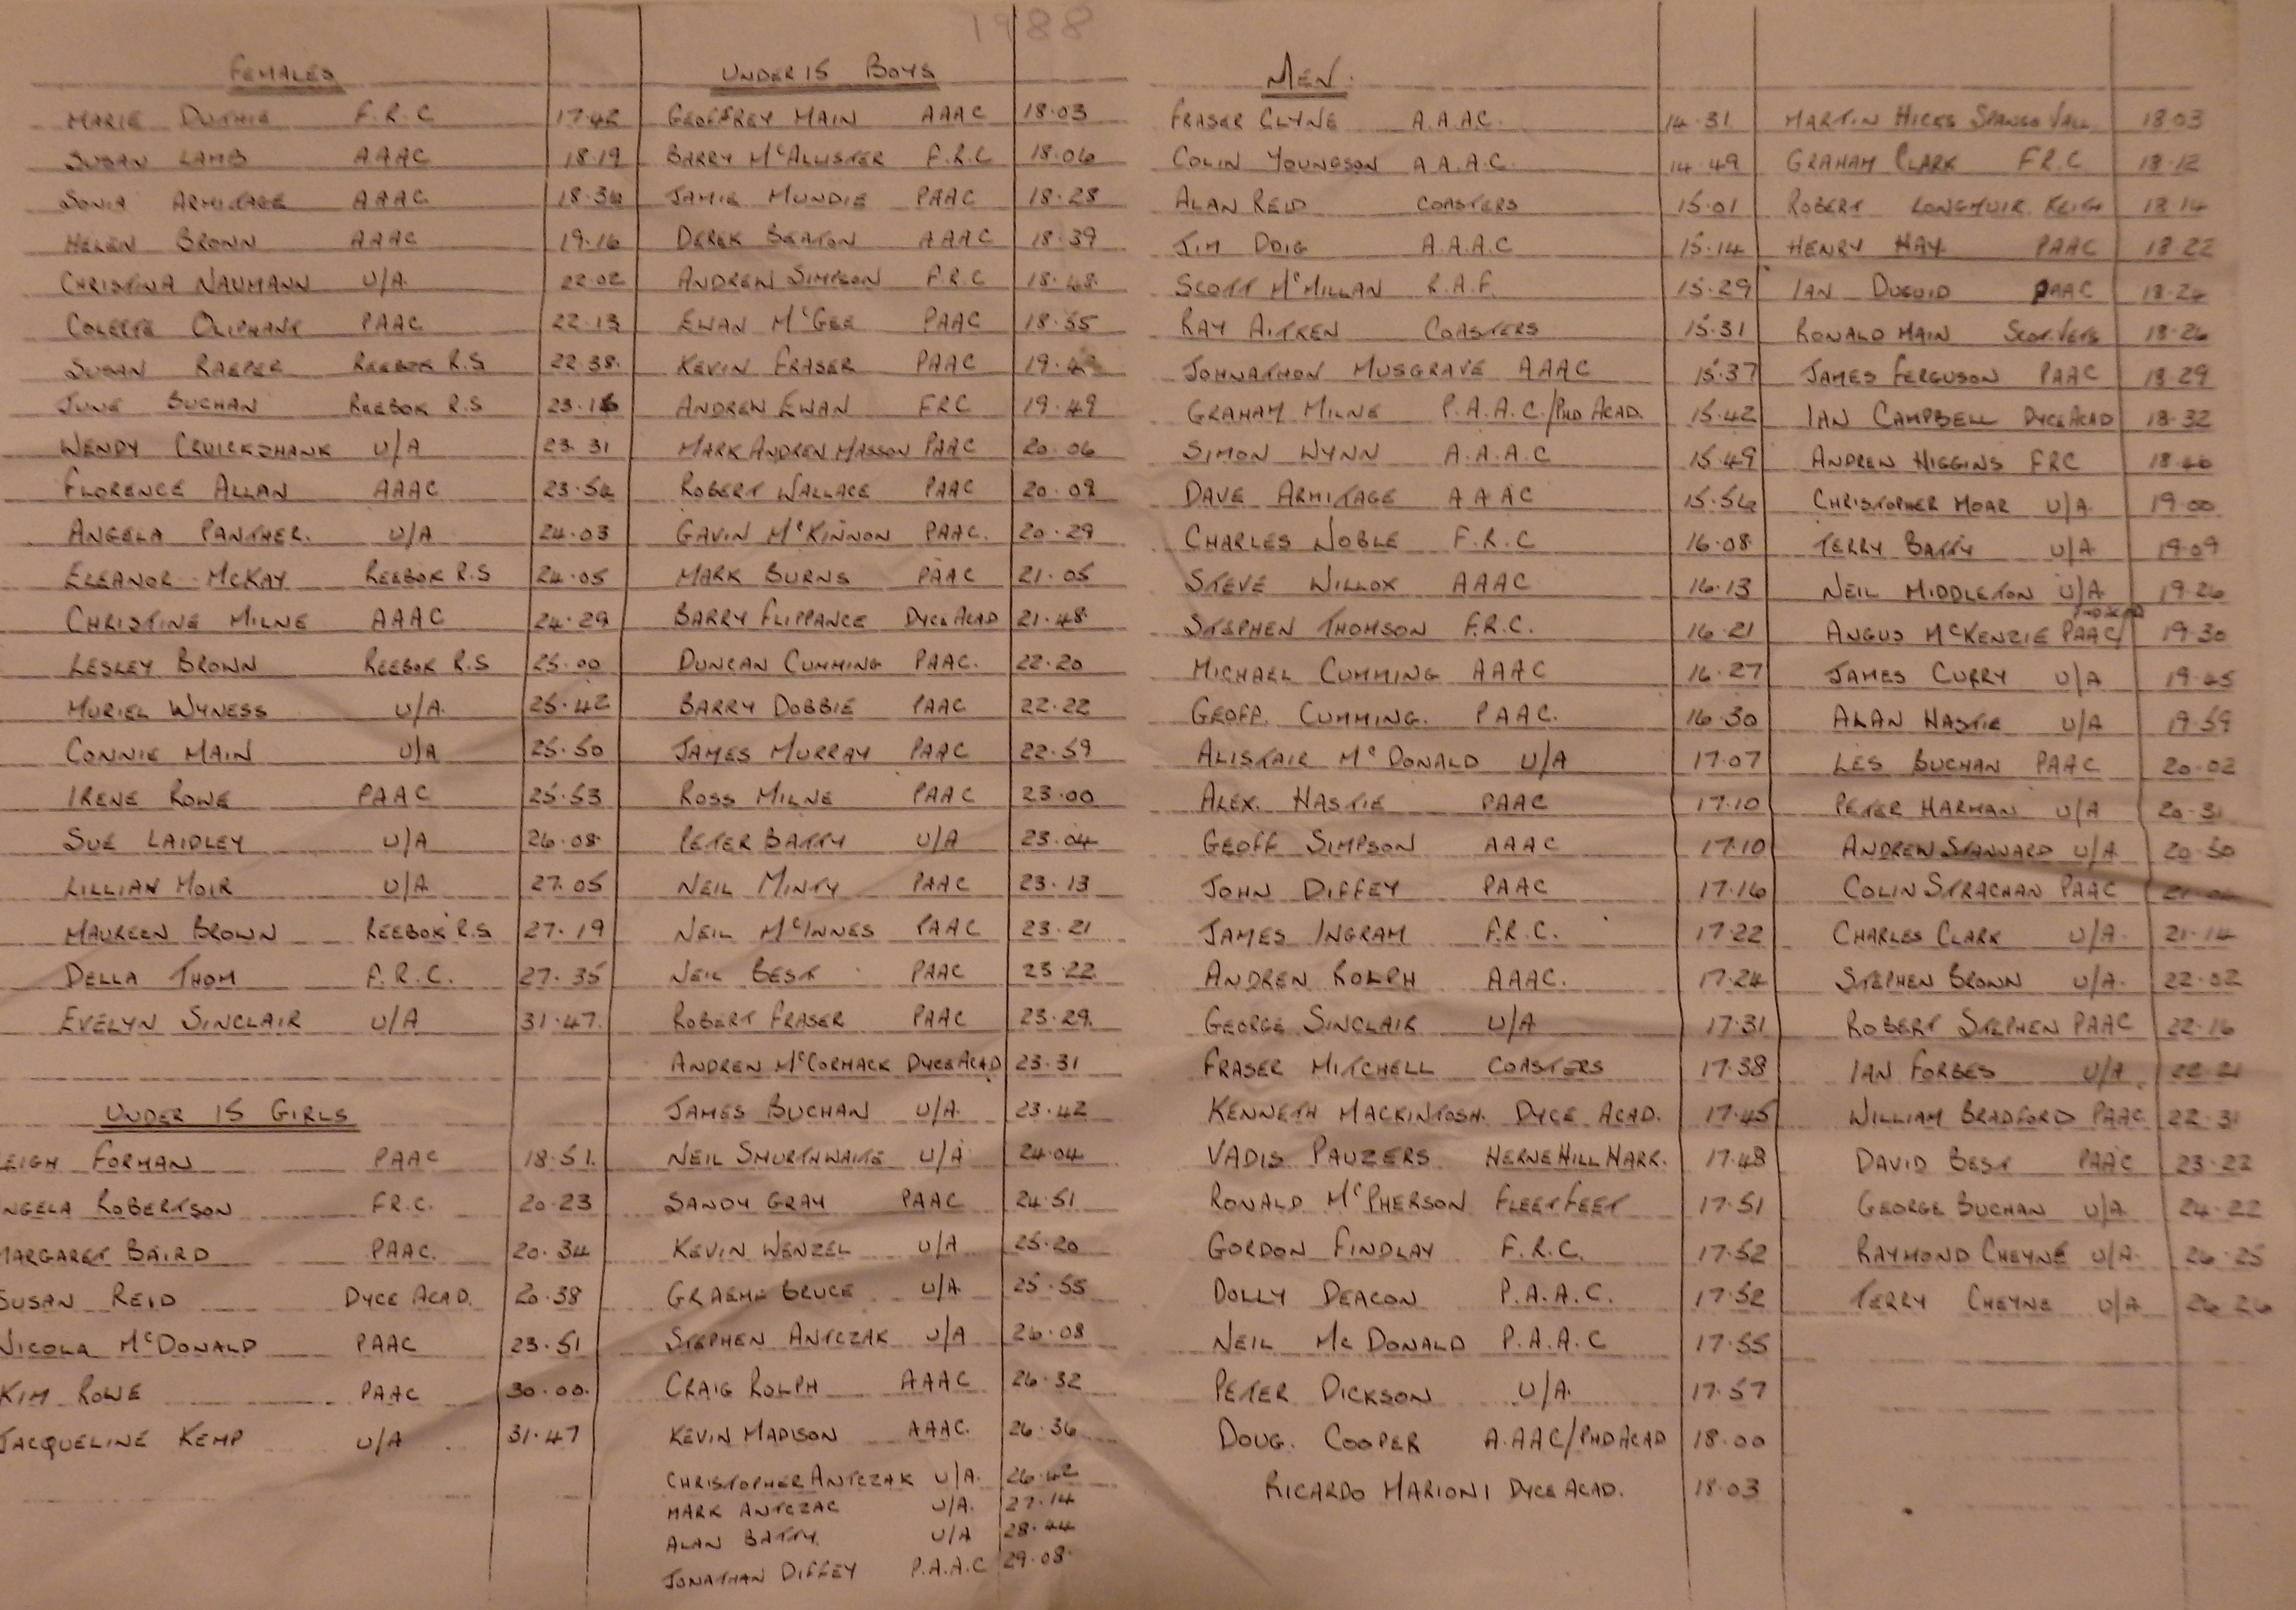 1988
FEMALES
MARIE DUTHIE F.R.C 17.42
SUSAN LAMB AAAC 18.19
SONIA ARMITAGE AAAC 18.36
HELEN BROWN AAAC 19.16
CHRISTINA NAUMANN U/A 22.02
COLETTE OLIPHANT PAAC 22.13
SUSAN RAEPER REEBOK R.S 22.38.
JUNE BUCHAN REEBOK R.S 23.16
WENDY CRUICKSHANK U/A 23.31
FLORENCE ALLAN AAAC 23.54
ANGELA PANTHER. U/A 24.03
ELEANOR McKAY REEBOK R.S 24.05
CHRISTINE MILNE AAAC 24.29
LESLEY BROWN REEBOK R.S 25.00
MURIEL WYNESS U/A. 25.42
CONNIE MAIN U/A 25.50
IRENE ROWE PAAC 25.53
SUE LAIDLEY U/A 26.08
LILLIAN MOIR U/A 27.05
MAUREEN BROWN REEBOK R.S 27.19
DELLA THOM F.R.C. 27.35
EVELYN SINCLAIR U/A 31.47.
UNDER 15 GIRLS
EIGH FORMAN PAAC 18.51.
NGELA ROBERTSON F.R.C. 20.23
MARGARET BAIRD PAAC. 20.34
SUSAN REID DYCE ACAD. 20.38
NICOLA McDONALD PAAC 23.51
KIM ROWE PAAC 30.00.
JACQUELINE KEMP U/A 31.47
UNDER 15 BOYS
GEOFFREY MAIN AAAC 18.03
BARRY McALLISTER F.R.C 18.06
JAMIE MUNDIE PAAC 18.28
DEREK BEATON AAAC 18.39
ANDREW SIMPSON F.R.C 18.48
EWAN McGEE PAAC 18.55
KEVIN FRASER PAAC
ANDREW EWAN FRC 19.49
MARK ANDREW MASSON PAAC 20.06
ROBERT WALLACE PAAC 20.09
GAVIN McKINNON PAAC. 20.29
MARK BURNS PAAC 21.05
BARRY FLIPPANCE DYCE ACAD 21.48
DUNCAN CUMMING PAAC. 22.20
BARRY DOBBIE PAAC 22.22
JAMES MURRAY PAAC 22.59
ROSS MILNE PAAC 23.00
PETER BATTY U/A 23.04
NEIL MINTY PAAC 23.13
NEIL McINNES PAAC 23.21
NEIL BEST PAAC 23.22
ROBERT FRASER PAAC 23.29
ANDREW McCORMACK DYCE ACAD 23.31
JAMES BUCHAN U/A. 23.42
NEIL SMURTHWAITE U/A 24.04
SANDY GRAY PAAC 24.51
KEVIN WENZEL U/A 25.20
GRAEME BRUCE U/A 25.55
STEPHEN ANTCZAK U/A 26.08
CRAIG ROLPH AAAC 26.32
KEVIN MADISON AAAC. 26.36
CHRISTOPHER ANTCZAK U/A. 26.42
MARK ANTCZAC U/A. 27.14
ALAN BATTY. U/A 28.44
JONATHAN DIFFEY P.A.A.C 29.08
MEN.
FRASER CLYNE A.A.A.C. 14.31
COLIN YOUNGSON A.A.A.C. 14.49
ALAN REID COASTERS 15.01
JIM DOIG A.A.A.C 15.14
SCOTT McMILLAN R.A.F. 15.29
RAY AITKEN COASTERS 15.31
JOHNATHON MUSGRAVE AAAC 15.37
GRAHAM MILNE P.A.A.C./PHD ACAD. 15.42
SIMON WYNN A.A.A.C 15.49
DAVE ARMITAGE AAAC 15.56
CHARLES NOBLE F.R.C 16.08
STEVE WILLOX AAAC 16.13
STEPHEN THOMSON F.R.C. 16.21
MICHAEL CUMMING AAAC 16.27
GEOFF. CUMMING. PAAC. 16.30
ALISTAIR McDONALD U/A 17.07
ALEX. HASTIE PAAC 17.10
GEOFF SIMPSON AAAC 17.10
JOHN DIFFEY PAAC 17.16
JAMES INGRAM F.R.C. 17.22
ANDREW ROLPH AAAC. 17.24
GEORGE SINCLAIR U/A 17.31
FRASER MITCHELL COASTERS 17.38
KENNETH MACKINTOSH. DYCE ACAD. 17.45
VADIS PAUZERS HERNE HILL HARR. 17.48
RONALD McPHERSON FLEETFEET 17.51
GORDON FINDLAY F.R.C. 17.52
DOLLY DEACON P.A.A.C. 17.52
NEIL Mc DONALD P.A.A.C 17.55
PETER DICKSON U/A. 17.57
DOUG. COOPER A.AAC/PHD ACAD 18.00
RICARDO MARIONI DYCE ACAD. 18.03
MARTIN HICKS SPANGO VALL 18.03
GRAHAM CLARK F.R.C 18.12
ROBERT LONGMUIR KEITH 18.14
HENRY HAY PAAC 18.22
IAN DUGUID PAAC 18.24
RONALD MAIN SCOT.VETS 18.26
JAMES FERGUSON PAAC 18.29
IAN CAMPBELL DYCE ACAD 18.32
ANDREW HIGGINS FRC 18.46
CHRISTOPHER MOAR U/A 19.00
TERRY BATTY U/A 19.09
NEIL MIDDLETON U/A 19.26
ANGUS McKENZIE PAAC/ 19.30
JAMES CURRY U/A 19.45
ALAN HASTIE U/A 19.59
LES BUCHAN PAAC 20.02
PETER HARMAN U/A 20.31
ANDREW STANNARD U/A 20.50
COLIN STRACHAN PAAC
CHARLES CLARK U/A 21.14
STEPHEN BROWN U/A. 22.02
ROBERT STEPHEN PAAC 22.16
IAN FORBES U/A 22.21
WILLIAM BRADFORD PAAC 22.31
DAVID BEST PAAC 23.22
GEORGE BUCHAN U/A 24.22
RAYMOND CHEYNE U/A. 26.25
TERRY CHEYNE U/A 26.26